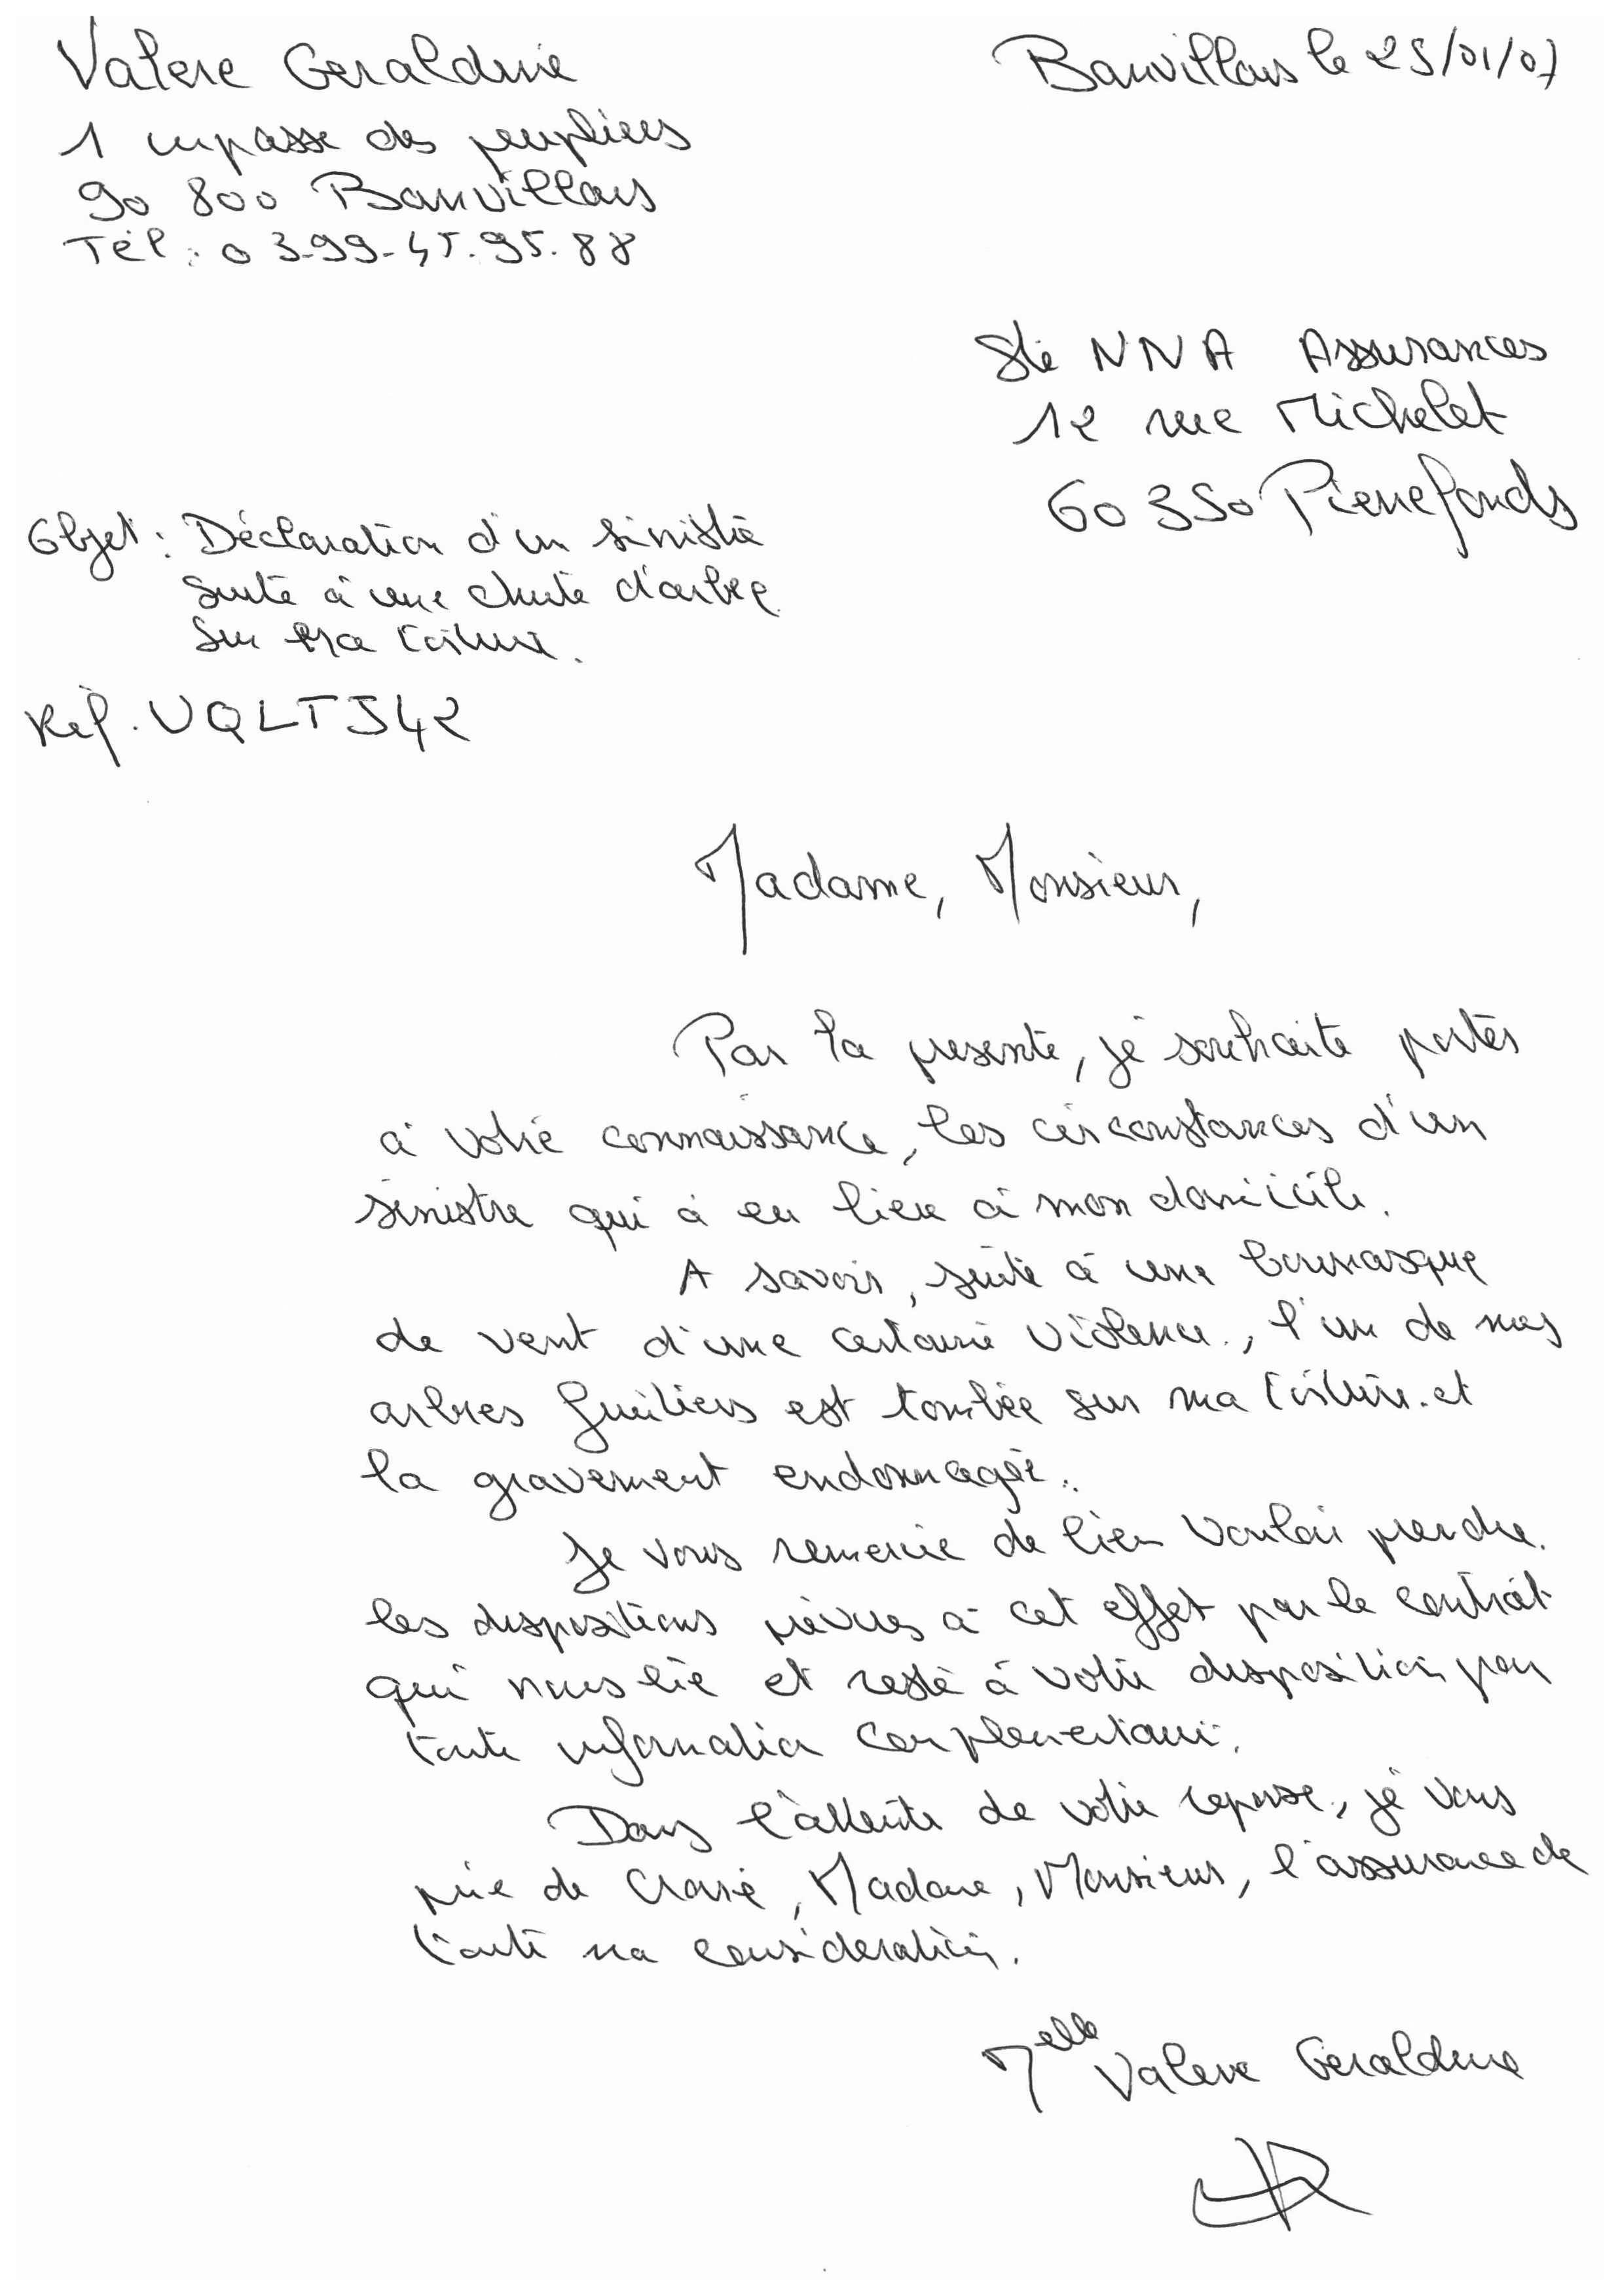 Valere Geraldine
Banvillars le 25/01/07
1 impasse des peupliers
90 800 Banvillars
Tél : 03-99-45.95.88
Sté NNA Assurances
12 rue Michelet
60350 Pierrefonds
Objet : Déclaration d'un sinistre
suite à une chute d'arbre
sur ma voiture.
Réf. VQLTJ42
Madame, Monsieur,
Par la presente, je souhaite porter
à votre connaissance, les circonstances d'un
sinistre qui à eu lieu à mon domicile.
A savoir, suite à une bourrasque
de vent d'une certaine violence, l'un de mes
arbres fruitiers est tombée sur ma voiture et
la gravement endommagée.
Je vous remercie de bien vouloir prendre
les dispositions prévues à cet effet par le contrat
qui nous lie et reste à votre disposition pour
toute information complementaire.
Dans l'attente de votre reponse, je vous
prie de croire, Madame, Monsieur, l'assurance de
toute ma consideration.
Melle Valere Geraldine